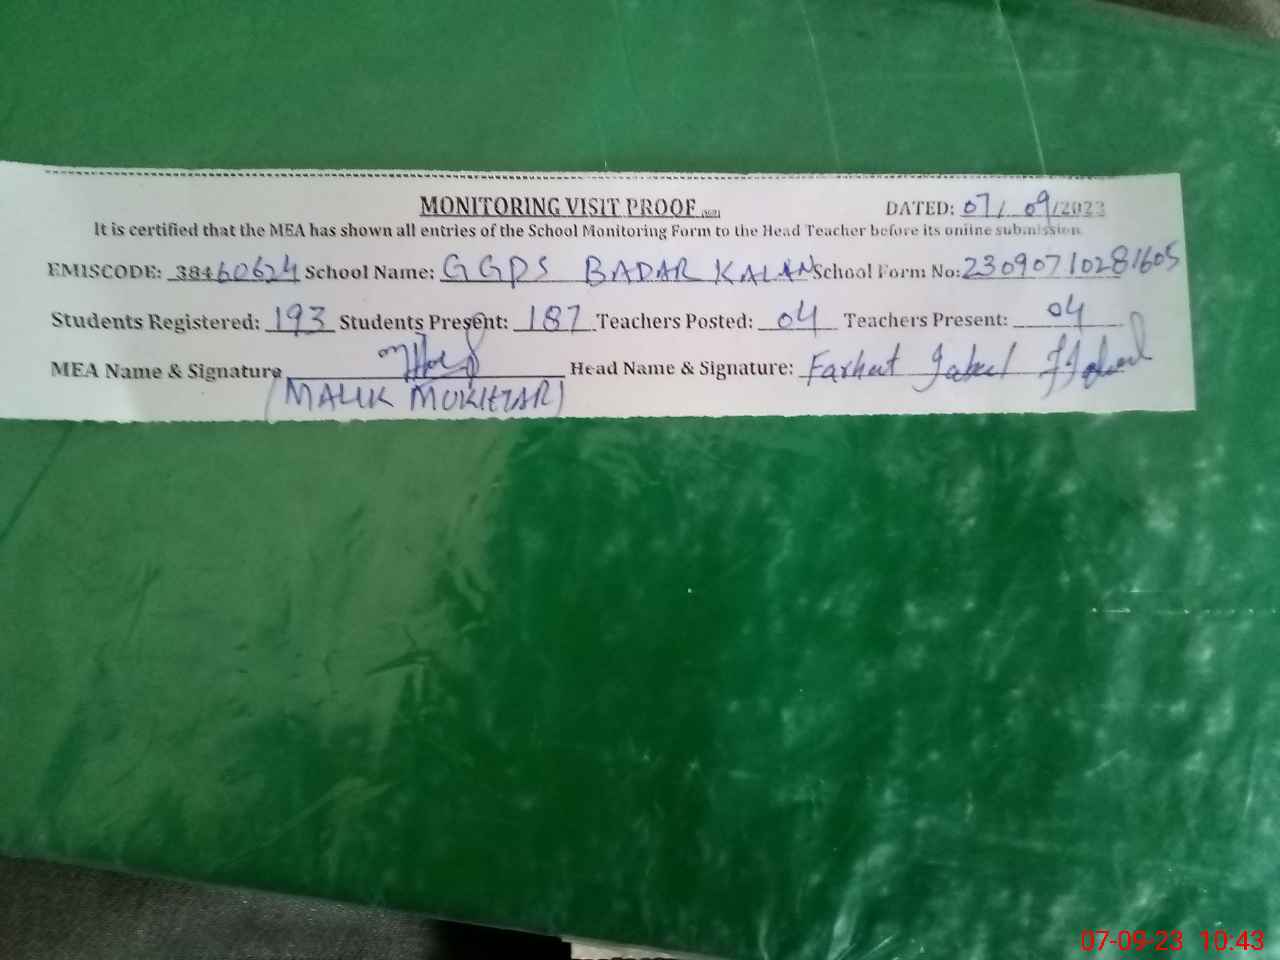 MONITORING VISIT PROOF DATED: 07/09/2023
It is certified that the MEA has shown all entries of the School Monitoring Form to the Head Teacher before its online submission.
EMISCODE: 38460624 School Name: GGPS BADAR KALAN School Form No: 23090710281605
Students Registered: 193 Students Present: 187 Teachers Posted: 04 Teachers Present: 04
MEA Name & Signature Head Name & Signature: Farhat
(MALIK MUKHTAR)
07-09-23 10:43